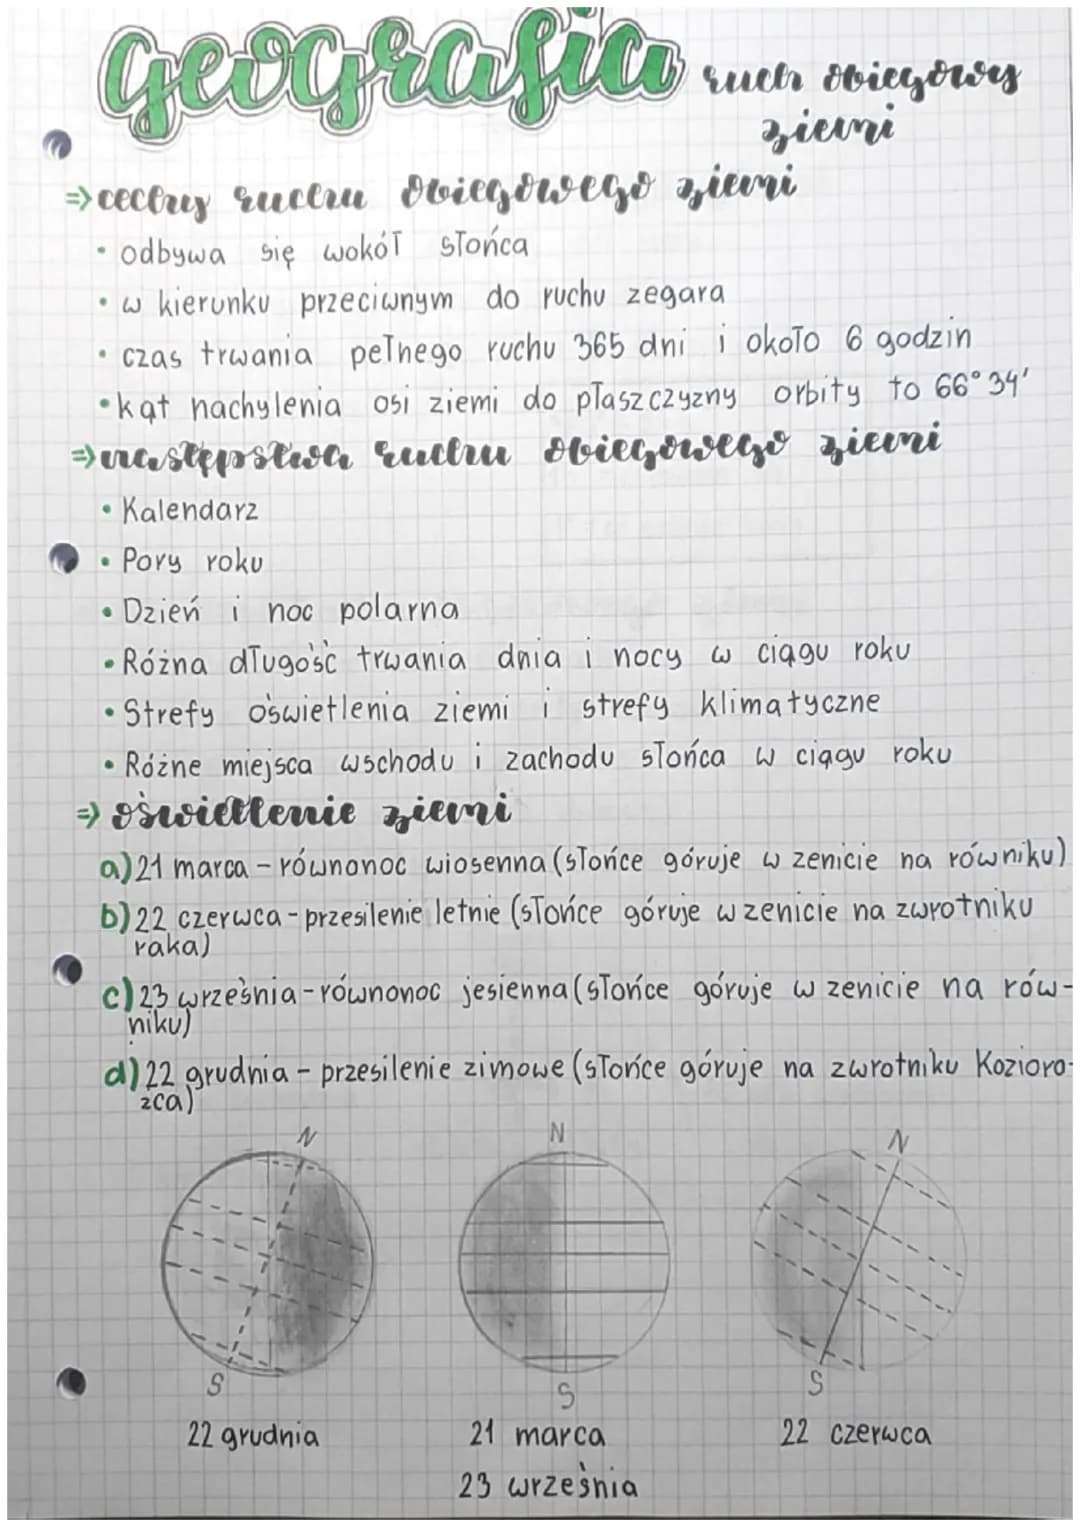 Geografia ruch obiegowy
ziemi
⇒ cechy ruchu obiegowego ziemi
• odbywa się wokół słońca
• w kierunku przeciwnym do ruchu zegara
• czas trwania pełnego ruchu 365 dni i około 6 godzin
• kąt nachylenia osi ziemi do płaszczyzny orbity to 66°34'
⇒ następstwa ruchu obiegowego ziemi
• Kalendarz
• Pory roku
• Dzień i noc polarna
• Różna długość trwania dnia i nocy w ciągu roku
• Strefy oświetlenia ziemi i strefy klimatyczne
• Różne miejsca wschodu i zachodu słońca w ciągu roku
⇒ oświetlenie ziemi
a) 21 marca - równonoc wiosenna (słońce góruje w zenicie na równiku)
b) 22 czerwca - przesilenie letnie (słońce góruje w zenicie na zwrotniku
raka)
c) 23 września - równonoc jesienna (słońce góruje w zenicie na rów-
niku)
d) 22 grudnia - przesilenie zimowe (słońce góruje na zwrotniku Kozioro-
żca)
N N N
S S S
22 grudnia 21 marca 22 czerwca
23 września